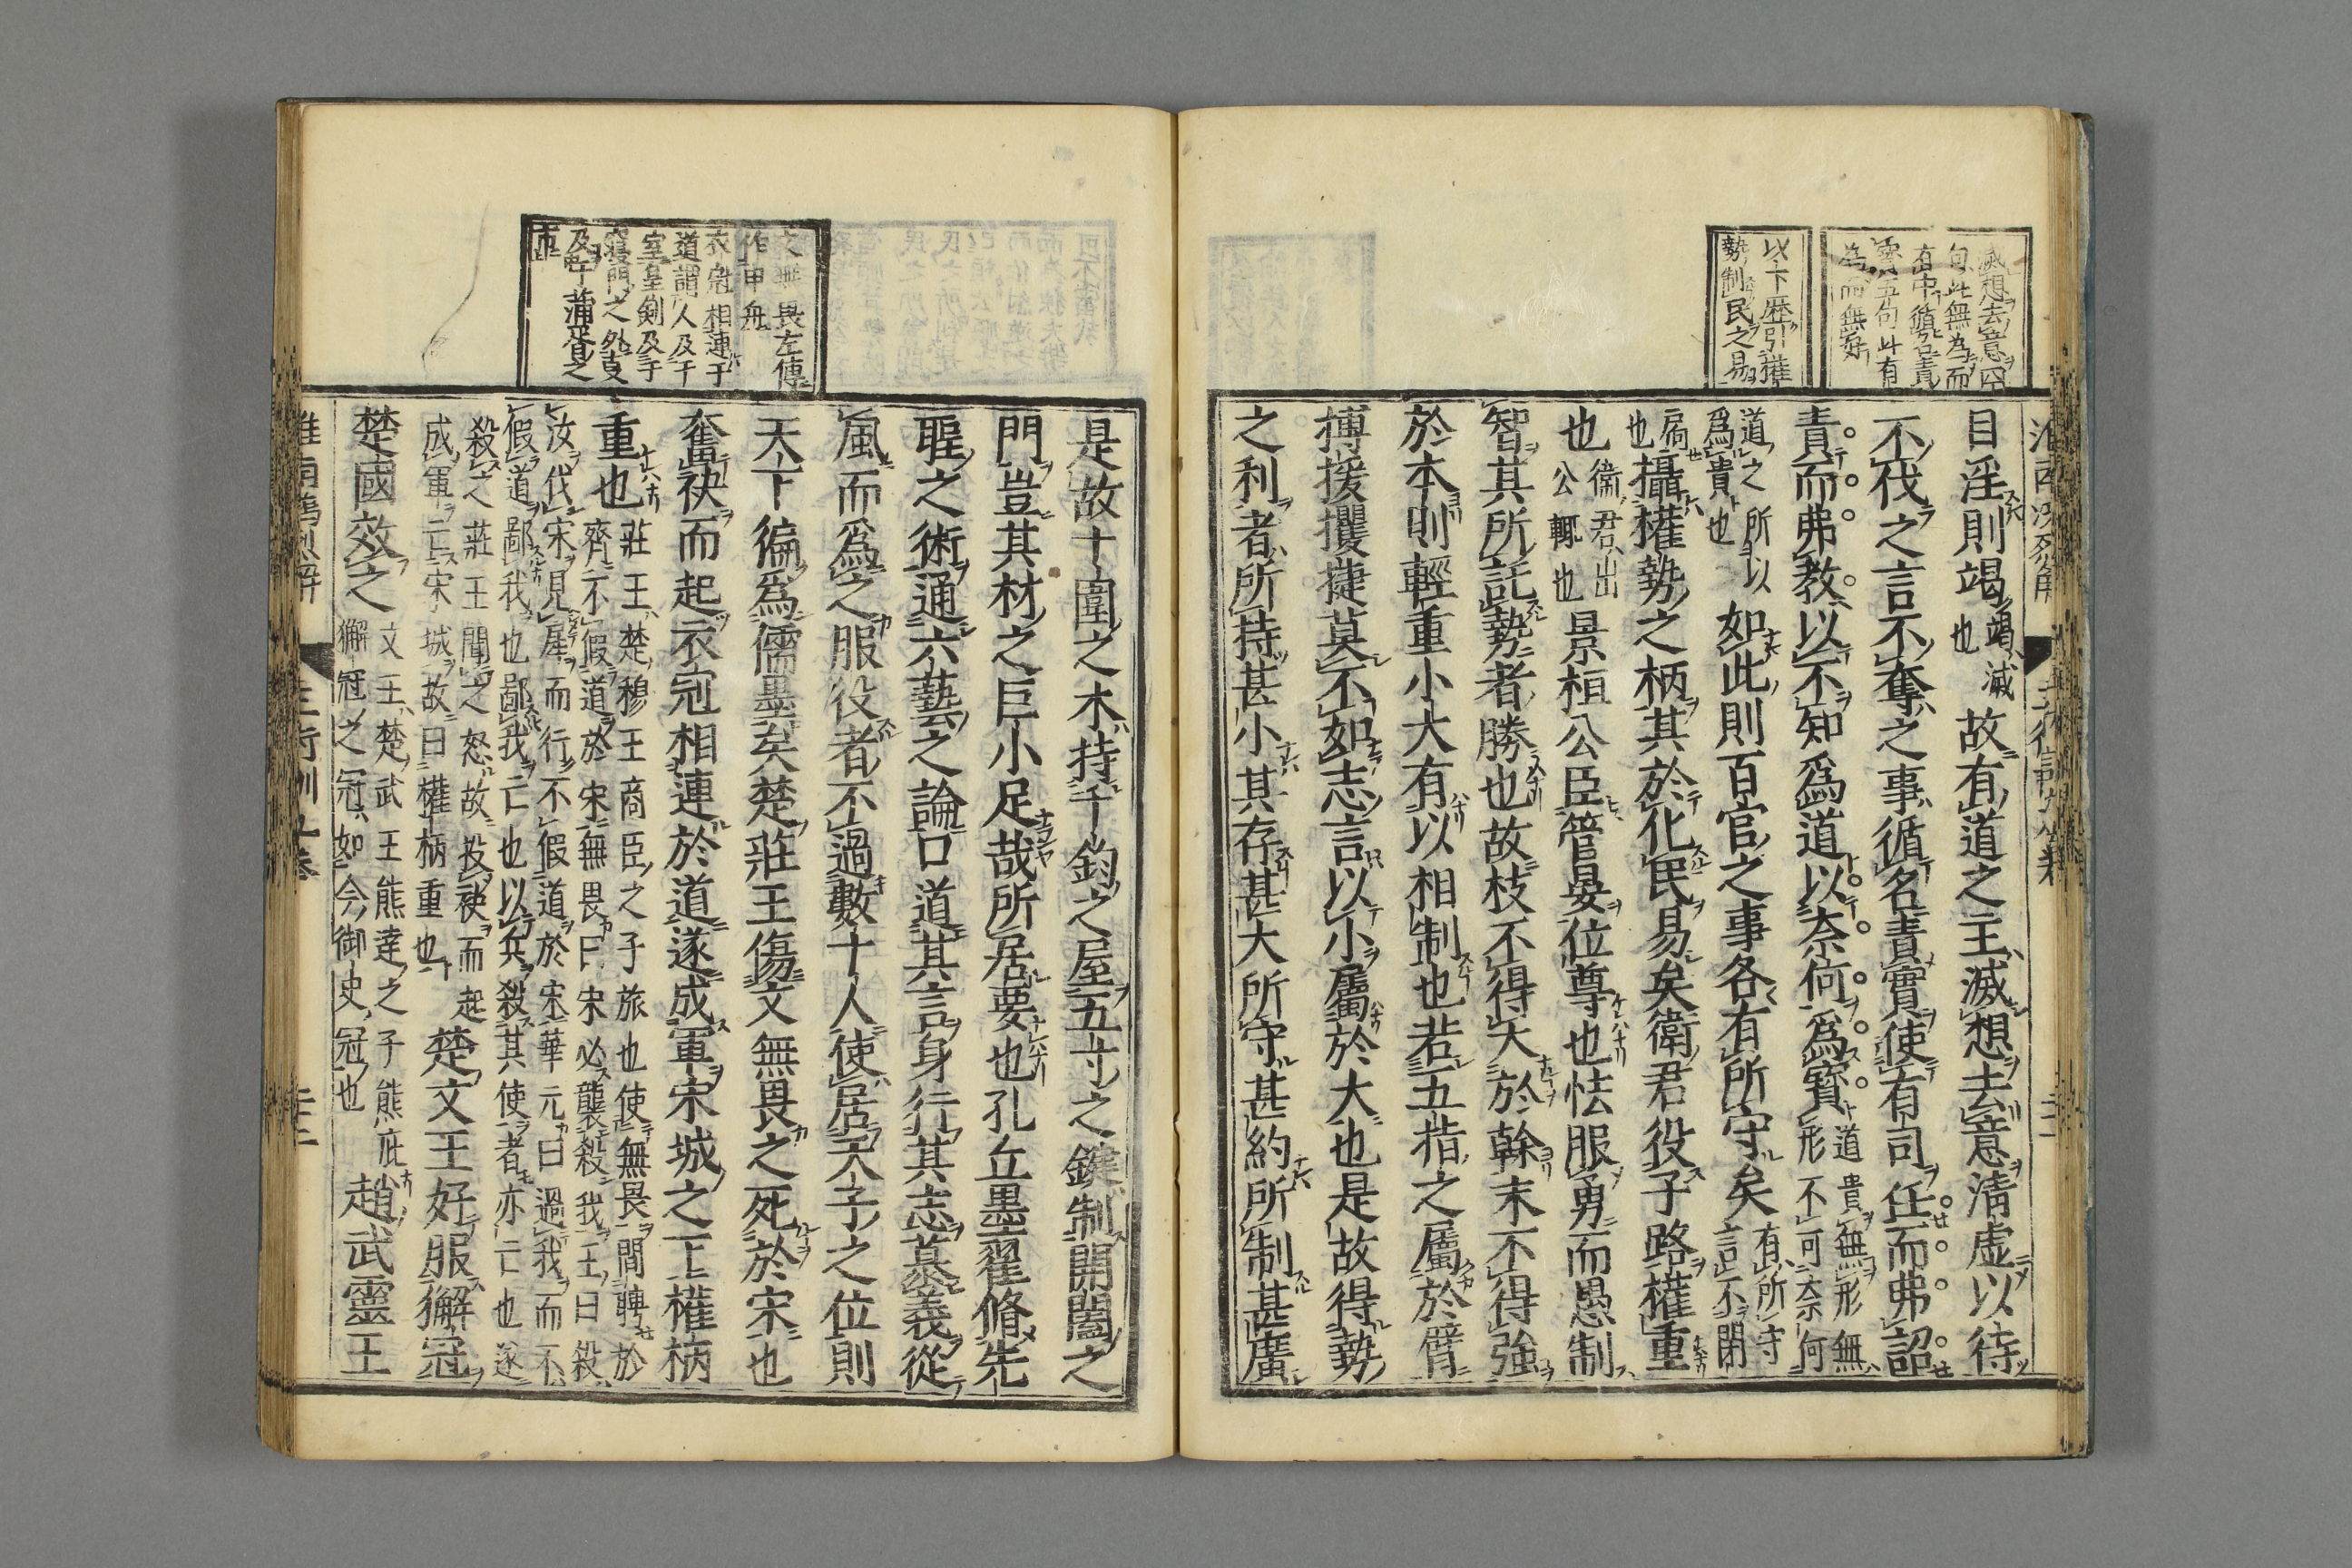 滅想去意四
句此無為而
有中循名責
實五句此有
為而無好
以下歷引權
勢制民之易
目淫則竭竭滅也故有道之主滅想去意清虛以待
不伐之言不奪之事循名責實使有司任而弗詔
責而弗教以不知爲道以奈何爲寶道貴無形無形不可奈何
道之所以爲貴也如此則百官之事各有所守矣有所守言不閉
扃也攝權勢之柄其於化民易矣衛君役子路權重
也衛君出公輒也景桓公臣管晏位尊也怯服勇而愚制
智其所託勢者勝也故枝不得大於幹末不得強
於本則輕重小大有以相制也若五指之屬於臂
搏援攫捷莫不如志言以小屬於大也是故得勢
之利者所持甚小其存甚大所守甚約所制甚廣
文無畏左傳
作申舟
衣冠相連于
道謂人及于
窒皇劍及于
寢門之外車
及于蒲胥之
市
是故十圍之木持千鈞之屋五寸之鍵制開闔之
門豈其材之巨小足哉所居要也孔丘墨翟脩先
聖之術通六藝之論口道其言身行其志慕義從
風而爲之服役者不過數十人使居天子之位則
天下徧爲儒墨矣楚莊王傷文無畏之死於宋也
奮袂而起衣冠相連於道遂成軍宋城之下權柄
重也莊王楚穆王商臣之子旅也使無畏聘於齊不假道於宋無畏曰宋必襲殺我王曰殺
汝伐宋見犀而行不假道於宋華元曰過我而不假道鄙我也鄙我亡也以兵殺其使者亦亡也遂
殺之莊王聞之怒故投袂而起成軍亡宋城故曰權柄重也楚文王好服獬冠
楚國效之文王楚武王熊達之子熊庇獬冠之冠如今御史冠也趙武靈王